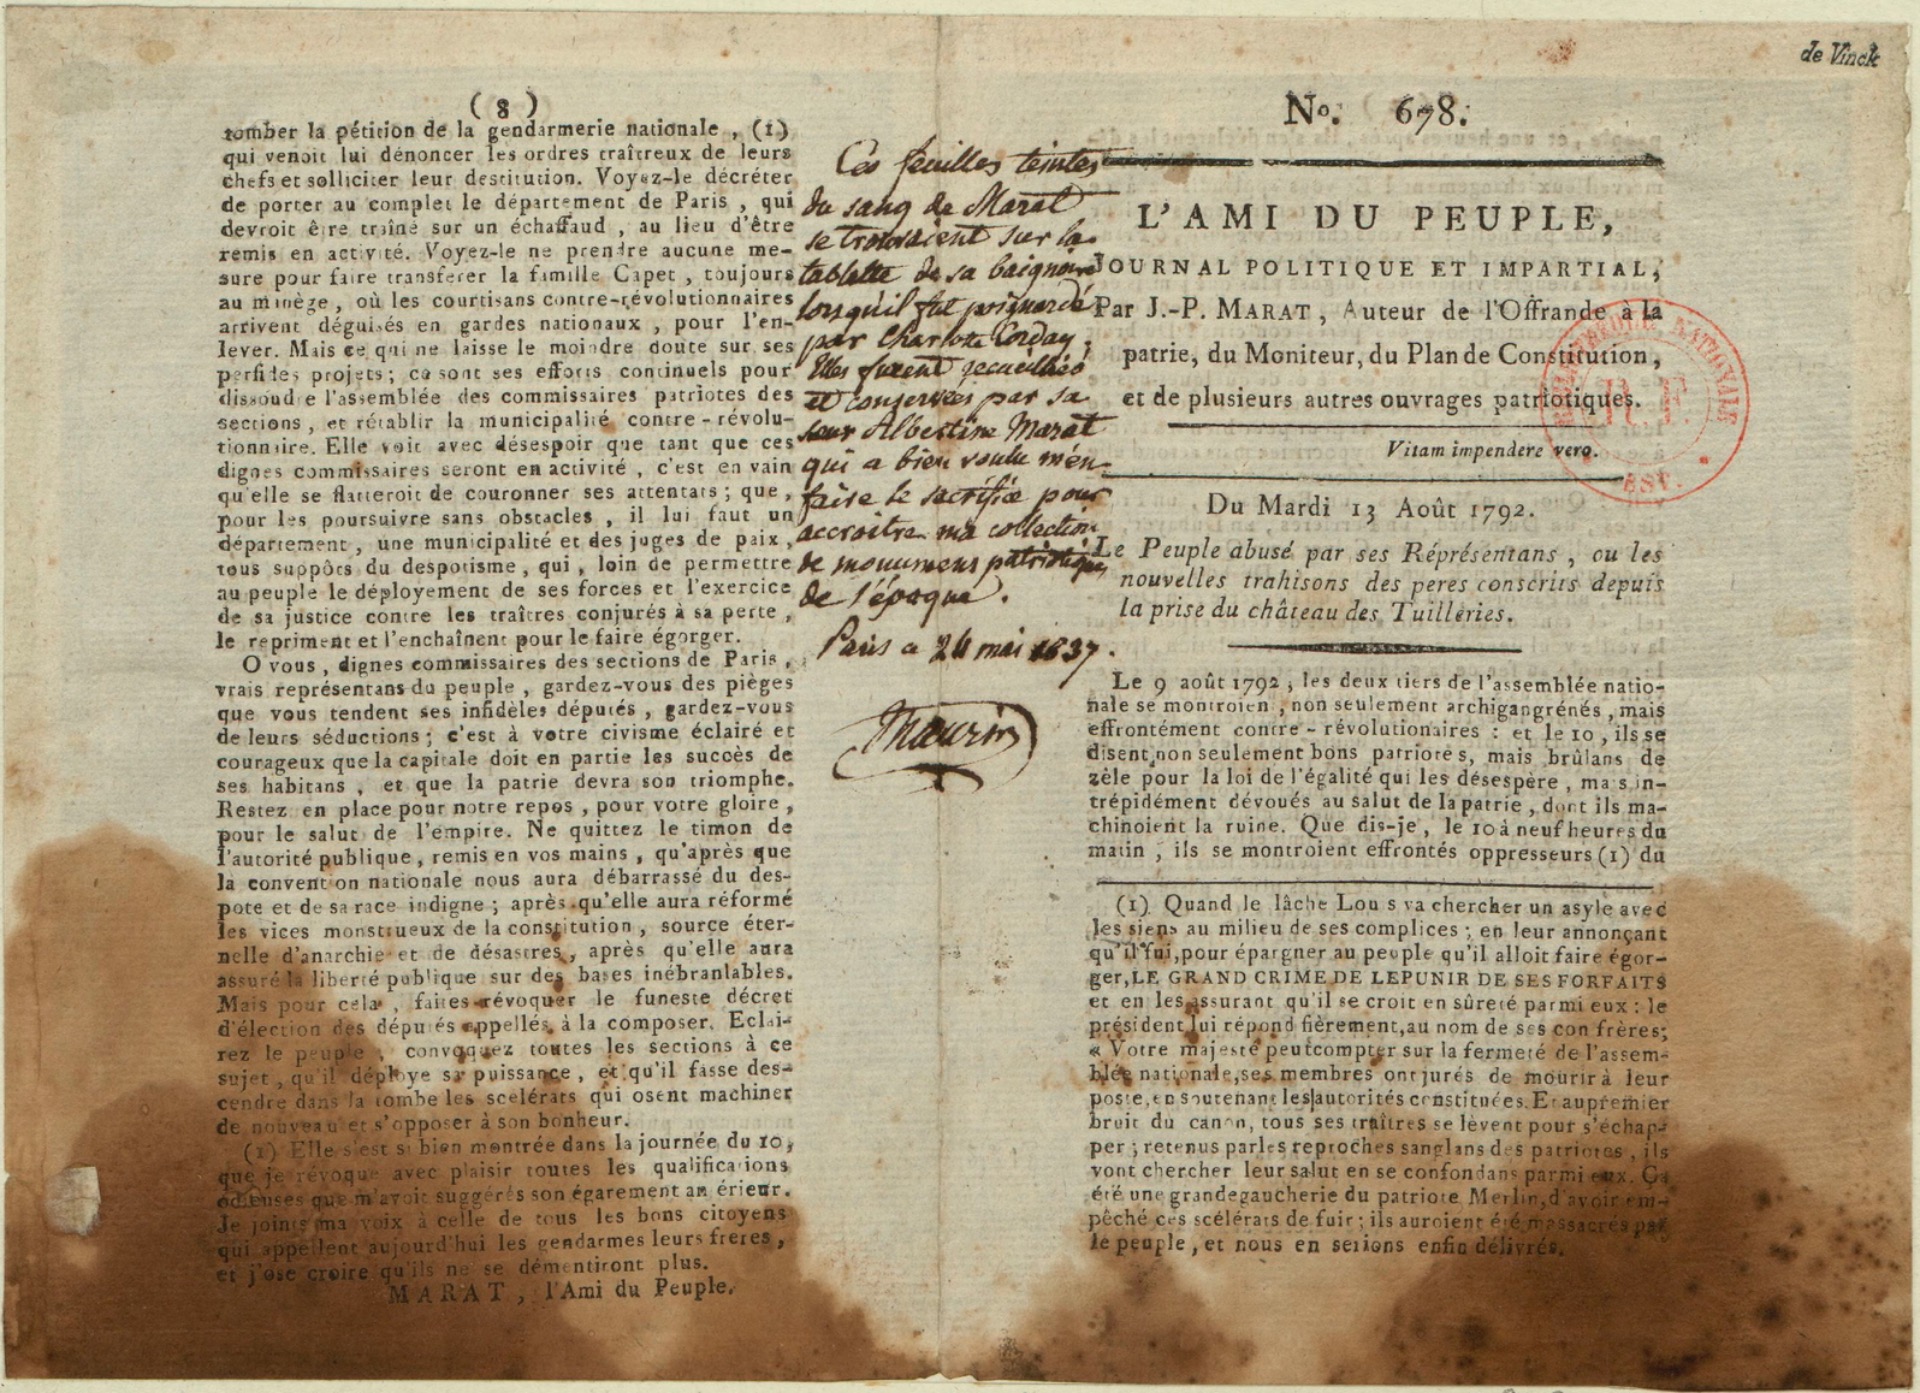 de Vinck
( 8 )
tomber la pétition de la gendarmerie nationale , (1)
qui venoit lui dénoncer les ordres traîtreux de leurs
chefs et solliciter leur destitution. Voyez-le décréter
de porter au complet le département de Paris , qui
devroit être traîné sur un échaffaud , au lieu d'être
remis en activité. Voyez-le ne prendre aucune me-
sure pour faire transférer la famille Capet , toujours
au mnège , où les courtisans contre-révolutionnaires
arrivent déguisés en gardes nationaux , pour l'en-
lever. Mais ce qui ne laisse le moindre doute sur ses
perfides projets ; ce sont ses efforts continuels pour
dissoudre l'assemblée des commissaires patriotes des
sections , et rétablir la municipalité contre-révolu-
tionnaire. Elle voit avec désespoir que tant que ces
dignes commissaires seront en activité , c'est en vain
qu'elle se flatteroit de couronner ses attentats ; que ,
pour les poursuivre sans obstacles , il lui faut un
département , une municipalité et des juges de paix ,
tous suppôts du despotisme , qui , loin de permettre
au peuple le déployement de ses forces et l'exercice
de sa justice contre les traîtres conjurés à sa perte ,
le repriment et l'enchaînent pour le faire égorger.
O vous , dignes commissaires des sections de Paris ,
vrais représentans du peuple , gardez-vous des pièges
que vous tendent ses infidèles députés , gardez-vous
de leurs séductions ; c'est à votre civisme éclairé et
courageux que la capitale doit en partie les succès de
ses habitans , et que la patrie devra son triomphe.
Restez en place pour notre repos , pour votre gloire ,
pour le salut de l'empire. Ne quittez le timon de
l'autorité publique , remis en vos mains , qu'après que
la convent on nationale nous aura débarrassé du des-
pote et de sa race indigne ; après qu'elle aura réformé
les vices monstrueux de la constitution , source éter-
nelle d'anarchie et de désastres , après qu'elle aura
assuré la liberté publique sur des bases inébranlables.
Mais pour cela , faites révoquer le funeste décret
d'élection des députés appellés à la composer. Eclai-
rez le peuple , convoquez toutes les sections à ce
sujet , qu'il déploye sa puissance , et qu'il fasse des-
cendre dans la tombe les scélérats qui osent machiner
de nouveau et s'opposer à son bonheur.
(1) Elle s'est si bien montrée dans la journée du 10,
que je révoque avec plaisir toutes les qualifications
odieuses que m'avoit suggérés son égarement an érieur.
Je joints ma voix à celle de tous les bons citoyens
qui appellent aujourd'hui les gendarmes leurs freres ,
et j'ose croire qu'ils ne se démentiront plus.
MARAT , l'Ami du Peuple.
Ces feuilles teintes
du sang de Marat
se trouvaient sur la
tablette de sa baignoire
lorsqu'il fut poignardé
par Charlotte Corday ;
Elles furent recueillies
et conservées par sa
sœur Albertine Marat
qui a bien voulu m'en
faire le sacrifice pour
accroitre ma collection
de monumens patriotiques
de l'époque.
Paris ce 24 mai 1837.
Maurin
No. 678.
L'AMI DU PEUPLE,
JOURNAL POLITIQUE ET IMPARTIAL,
Par J.-P. MARAT, Auteur de l'Offrande à la
patrie, du Moniteur, du Plan de Constitution,
et de plusieurs autres ouvrages patriotiques.
BIBLIOTHEQUE NATIONALE
R.F.
EST.
Vitam impendere vero.
Du Mardi 13 Août 1792.
Le Peuple abusé par ses Réprésentans , ou les
nouvelles trahisons des peres conscrits depuis
la prise du château des Tuilleries.
Le 9 août 1792 , les deux tiers de l'assemblée natio-
nale se montroien , non seulement archigangrénés , mais
effrontément contre-révolutionaires : et le 10 , ils se
disent non seulement bons patriotes, mais brûlans de
zèle pour la loi de l'égalité qui les désespère , mais in-
trépidément dévoués au salut de la patrie , dont ils ma-
chinoient la ruine. Que dis-je , le 10 à neuf heures du
matin , ils se montroient effrontés oppresseurs (1) du
(1) Quand le lâche Lou s va chercher un asyle avec
les siens au milieu de ses complices ; en leur annonçant
qu'il fui, pour épargner au peuple qu'il alloit faire égor-
ger, LE GRAND CRIME DE LE PUNIR DE SES FORFAITS
et en les assurant qu'il se croit en sûreté parmi eux : le
président lui répond fièrement, au nom de ses con frères;
« Votre majesté peut compter sur la fermeté de l'assem-
blée nationale, ses membres ont jurés de mourir à leur
poste, en soutenant les autorités constituées. Et au premier
bruit du canon, tous ses traîtres se lèvent pour s'échap-
per ; retenus par les reproches sanglans des patriotes , ils
vont chercher leur salut en se confondans parmi eux. Ça
été une grande gaucherie du patriote Merlin, d'avoir em-
pêché ces scélérats de fuir ; ils auroient été massacrés par
le peuple , et nous en serions enfin délivrés.